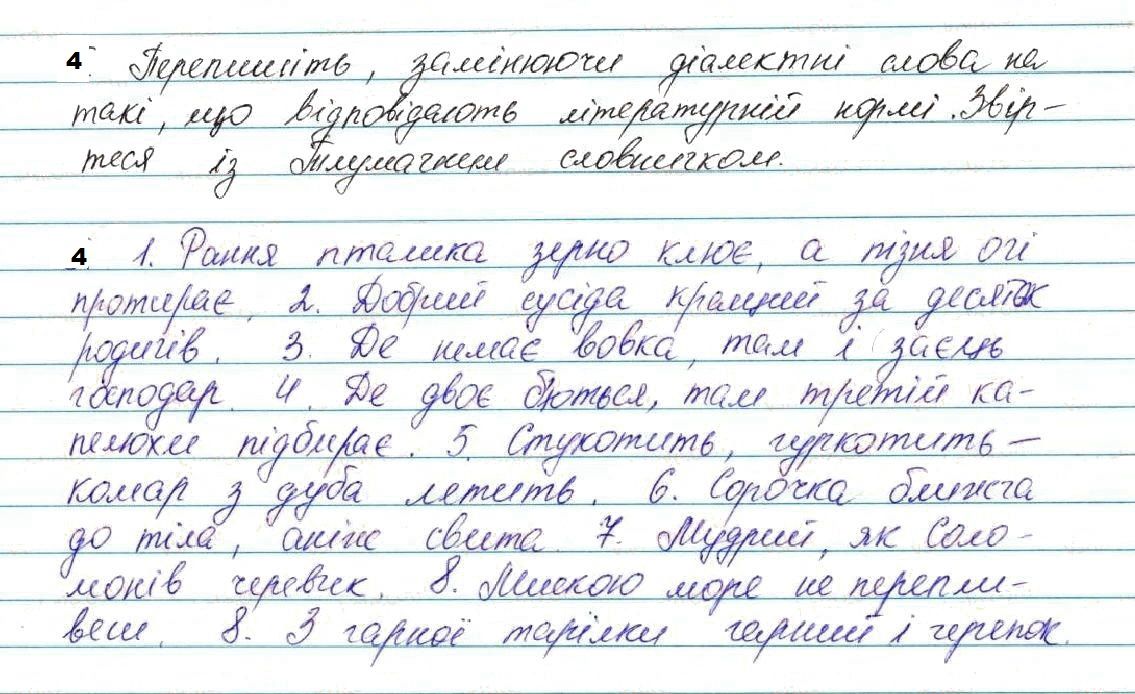 4. Перепишіть, замінюючи діалектні слова на
такі, що відповідають літературній нормі. Звір-
теся із Тлумачним словничком.
4. 1. Рання пташка зерно клює, а пізня очі
протирає. 2. Добрий сусіда кращий за десяток
родичів. 3. Де немає вовка, там і заєць
господар. 4. Де двоє б'ються, там третій ка-
пелюхи підбирає. 5. Стукотить, гуркотить –
комар з дуба летить. 6. Сорочка ближча
до тіла, аніж свита. 7. Мудрий, як Соло-
монів черевик. 8. Мискою море не перепли-
веш. 8. З гарної тарілки гарний і черепок.